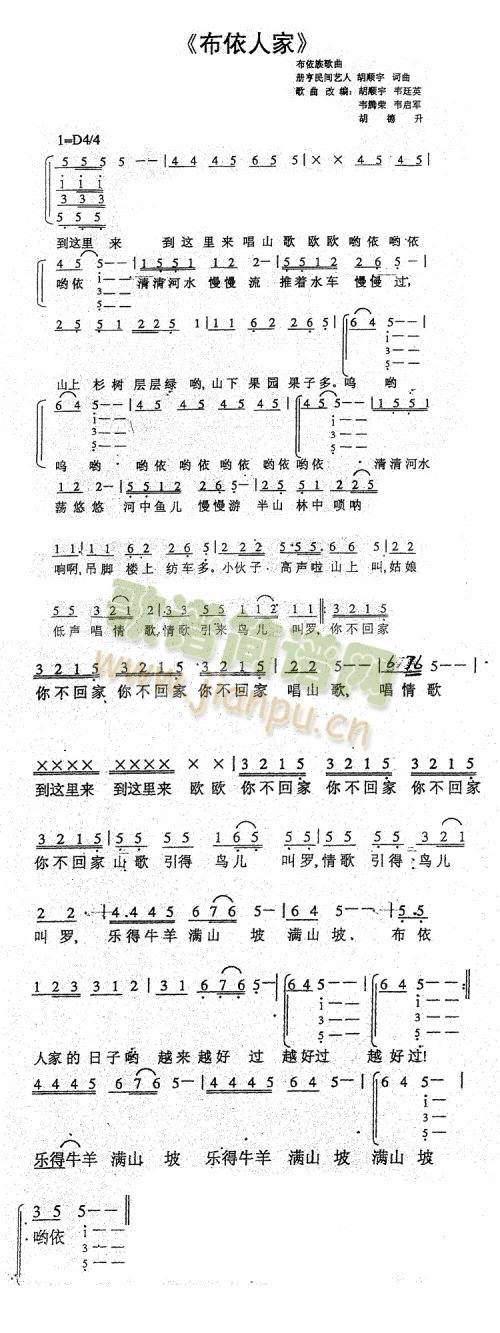 《布依人家》
布依族歌曲
册亨民间艺人 胡顺宇 词曲
歌曲改编：胡顺宇 韦廷英
韦腾荣 韦启军
胡德升
1=D4/4
5 5 5 5 5 - - | 4 4 4 5 6 5 5 | × × 4 5 4 5 |
到这里 来 到这里来唱山歌欧欧哟依哟依
4 5 5 - - | 1 5 5 1 1 2 2 - | 5 5 1 2 2 6 5 - |
哟依 清清河水 慢慢 流 推着水车 慢慢 过，
2 5 5 1 2 2 5 1 | 1 1 6 2 2 6 5 | 6 4 5 - - |
山上 杉树 层层绿 哟，山下 果园 果子多。呜 哟
6 4 5 - - | 4 5 4 5 4 5 4 5 | 4 5 5 - - | 1 5 5 1
呜 哟 哟依 哟依 哟依 哟依哟依 清清河水
1 2 2 - | 5 5 1 2 2 6 5 - | 2 5 5 1 2 2 5
荡悠悠 河中鱼儿 慢慢游 半山 林中 唢呐
1 1 | 1 1 6 2 2 6 5 | 2 2 2 5 5 5 6 6 5
响啊，吊脚 楼上 纺车多。小伙子 高声啦 山上 叫，姑娘
5 5 3 2 1 2 | 3 3 5 5 5 1 1 2 1 1 ‖: 3 2 1 5
低声 唱情 歌，情歌 引来 鸟儿 叫罗，你不回家
3 2 1 5 3 2 1 5 3 2 1 5 | 2 2 2 - | 6 7 6 5 - - |
你不回家 你不回家 你不回家 唱山歌，唱情歌
×××× ×××× × × | 3 2 1 5 3 2 1 5 3 2 1 5
到这里来 到这里来 欧欧 你不回家 你不回家 你不回家
3 2 1 5 | 5 5 5 5 1 6 5 5 5 | 5 5 5 5 3 2 1
你不回家 山歌 引得 鸟儿 叫罗，情歌 引得 鸟儿
2 2 - | 4 4 4 5 6 7 6 5 - | 6 6 5 - - | 5 5
叫罗，乐得牛羊 满山 坡 满山 坡、 布依
1 2 3 3 1 2 | 3 1 6 7 6 5 - | 6 4 5 - - | 6 4 5 - :‖
人家的 日子哟 越来 越好 过 越好过 越好过！
4 4 4 5 6 7 6 5 - | 4 4 4 5 6 6 5 - | 6 4 5 - - |
乐得牛羊 满山 坡 乐得牛羊 满山坡 满山坡
3 5 5 - - ‖
哟依
歌谱简谱网
www.jianpu.cn